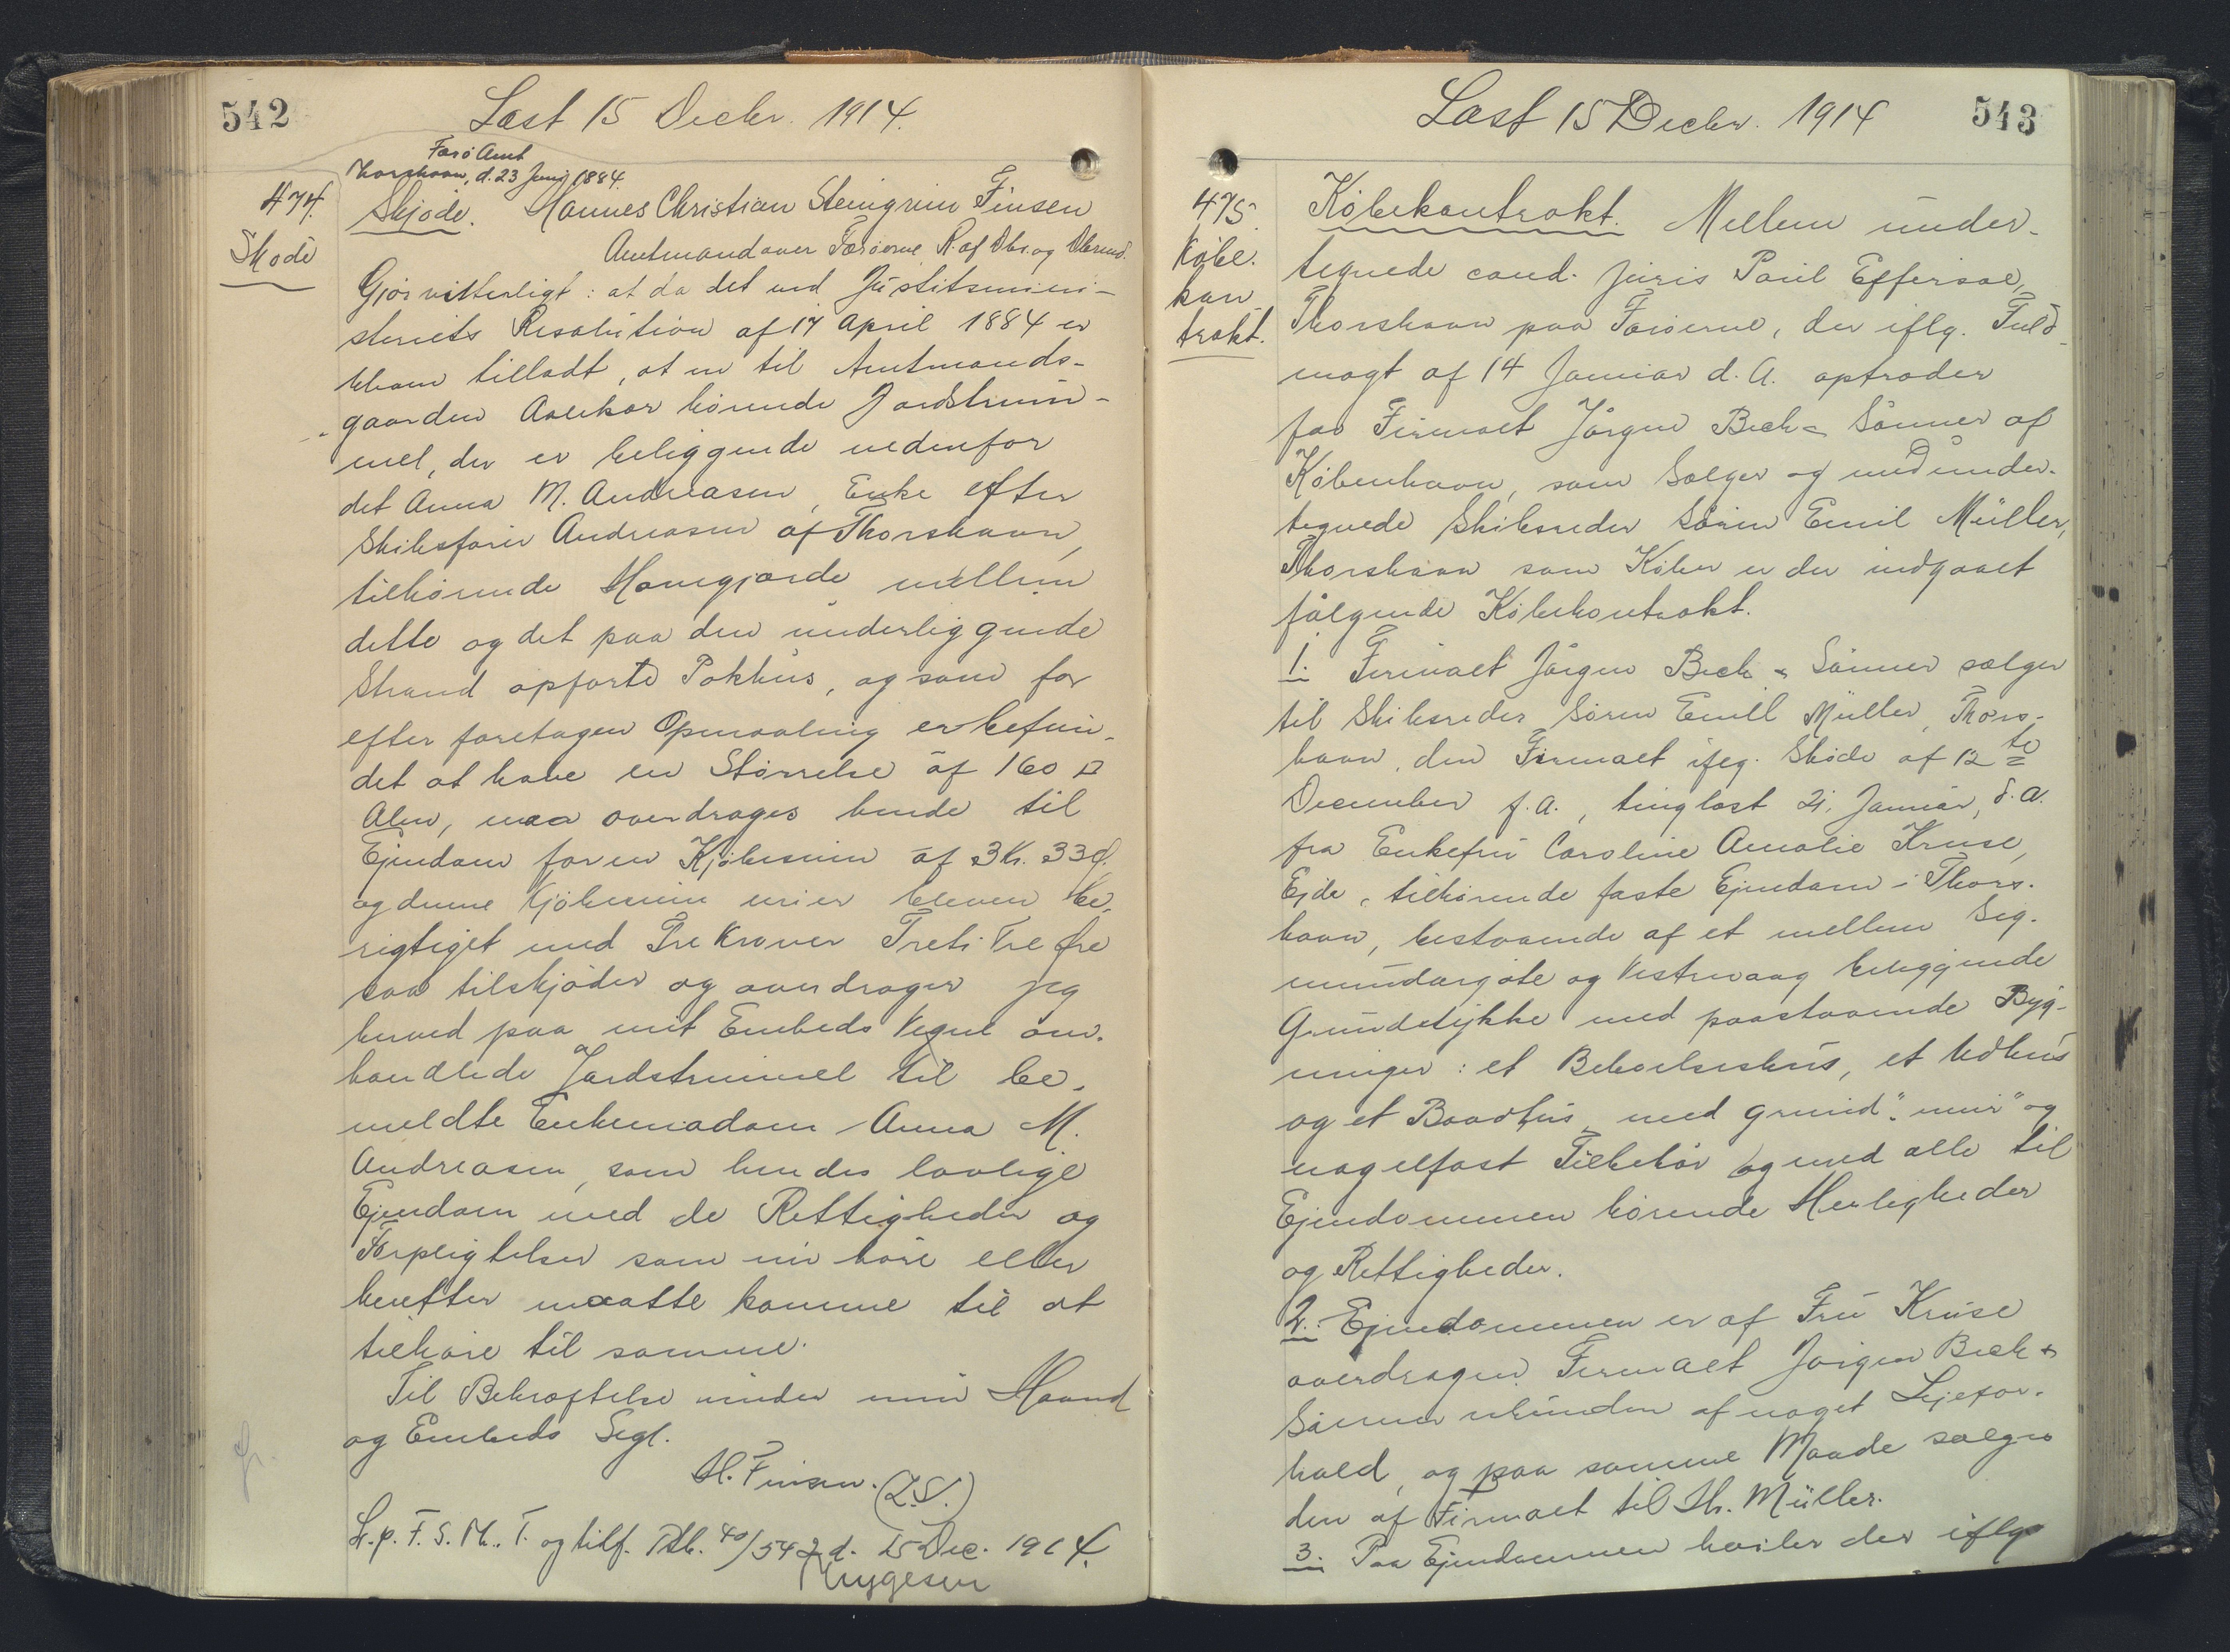 542
Læst 15 Decbr. 1914.
Færø Amt
Thorshavn, d. 23 Juni 1884.
474.
Skøde
Skjøde. Hannes Christian Steingrim Finsen
Amtmand over Færøerne R. af Dbr. og Dbrmd.
Gjør vitterligt: at da det ved Justitsmini-
steriets Resolution af 17 April 1884 er
tilladt, at en til Amtmands-
gaarden hørende Jordstrim-
mel, der er beliggende nedenfor
det Anna M. Andreasen, Enke efter
Skibsfører Andreasen af Thorshavn,
tilhørende Havegjærde mellem
dette og det paa den underliggende
Strand opførte Pakhus, og som for
efter foretagen Opmaaling er befun-
det at have en Størrelse af 160 □
Alen, maa overdrages hende til
Ejendom for en Kjøbesum af 3 Kr. 33 Ø.
og denne Kjøbesum nu er bleven be-
rigtiget med Tre Kroner Treti Tre Øre
saa tilskjøder og overdrager jeg
herved paa mit Embeds Vegne om-
handlede Jordstrimmel til be-
meldte Enkemadam Anna M.
Andreasen, som hendes lovlige
Ejendom med de Rettigheder og
Forpligtelser som nu høre eller
herefter maatte komme til at
tilhøre til samme.
Til Bekræftelse under min Haand
og Embeds Segl.
H. Finsen. (L.S.)
L. p. F. S. M. T. og tilf. Ptb. 40/542 d. 15 Dec. 1914.
543
Læst 15 Decbr. 1914
475.
Købe-
kon
trakt.
Købekontrakt. Mellem under-
tegnede cand. juris Poul Effersøe,
Thorshavn paa Færøerne, der iflg. Fuld-
magt af 14 Januar d. A. optræder
for Firmaet Jörgen Bech & Sönner af
København, som Sælger og medunder-
tegnede Skibsreder Sören Emil Müller,
Thorshavn som Køber er der indgaaet
følgende Købekontrakt.
1. Firmaet Jörgen Bech & Sönner sælger
til Skibsreder Sören Emill Müller, Thors-
havn, den Firmaet ifлg. Skøde af 12te
December f. A., tinglæst 21. Januar, d. A.
fra Enkefru Caroline Amalie Kruse,
Ejde, tilhørende faste Ejendom i Thors-
havn, bestaaende af et mellem Sig-
mundargøte og Vestrevaag beliggende
Grundstykke med paastaaende Byg-
ninger: et Beboelseshus, et Udhus
og et Baadhus med grund" mur" og
nagelfast Tilbehør og med alle til
Ejendommen hørende Herligheder
og Rettigheder.
2. Ejendommen er af Fru Kruse
overdragen Firmaet Jörgen Bech &
Sönner uhindret af noget Lejefor-
hold, og paa samme Maade sælges
den af Firmaet til Hr. Müller.
3. Paa Ejendommen hviler der iflg